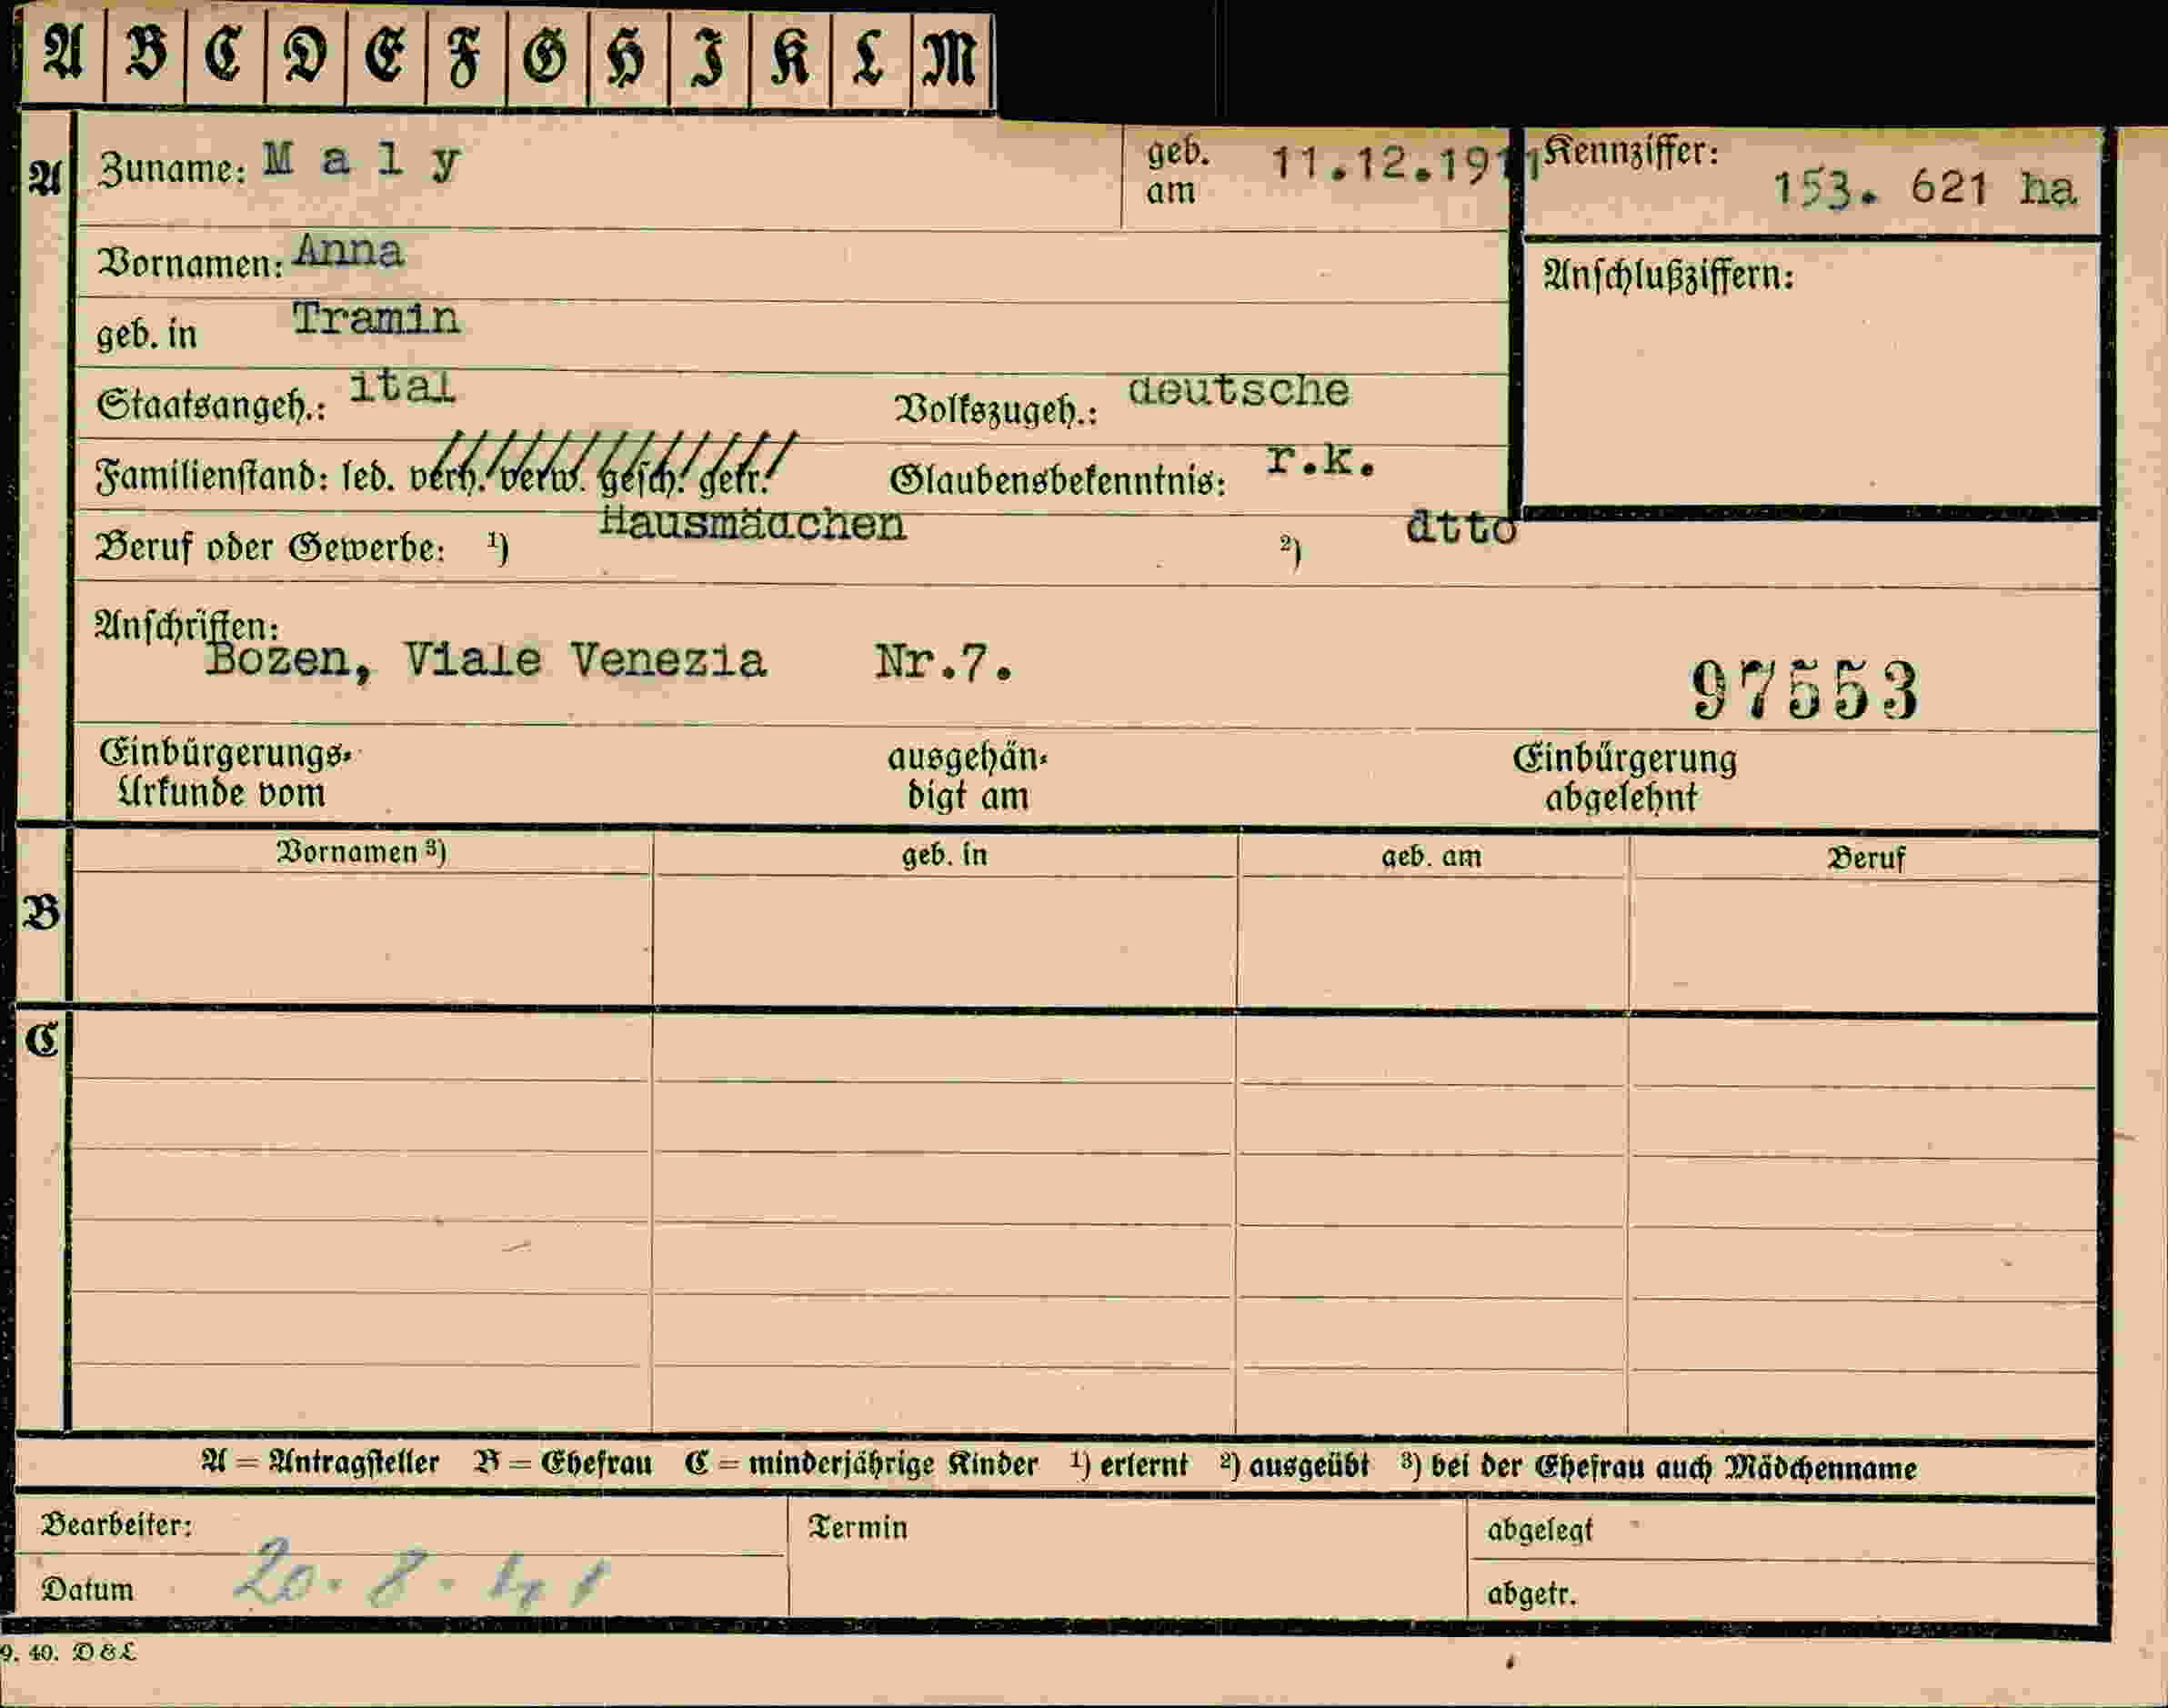 A B C D E F G H I K L M
A Zuname: Maly geb. am 11.12.1911 Kennziffer: 153. 621 ha
Vornamen: Anna Anschlußziffern:
geb. in Tramin
Staatsangeh.: ital Volkszugeh.: deutsche
Familienstand: led. verh. verw. gesch. getr. Glaubensbekenntnis: r.k.
Beruf oder Gewerbe: ¹) Hausmädchen ²) dtto
Anschriften:
Bozen, Viale Venezia Nr.7. 97553
Einbürgerungs- ausgehän- Einbürgerung
Urkunde vom digt am abgelehnt
Vornamen ³) geb. in geb. am Beruf
B
C
A = Antragsteller B = Ehefrau C = minderjährige Kinder ¹) erlernt ²) ausgeübt ³) bei der Ehefrau auch Mädchenname
Bearbeiter: Termin abgelegt
Datum 20.8.41 abgetr.
9. 40. D & L